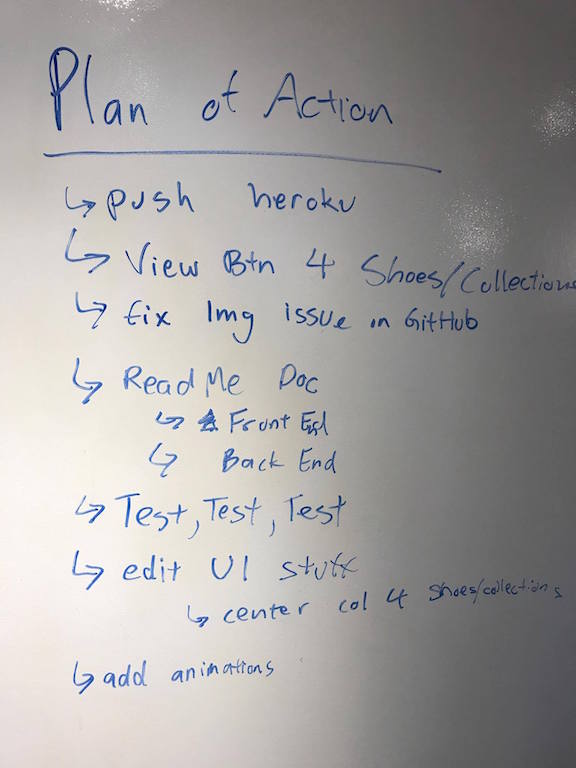 Plan of Action
↳ push heroku
↳ View Btn 4 Shoes/Collections
↳ fix Img issue in GitHub
↳ ReadMe Doc
↳ Front End
↳ Back End
↳ Test, Test, Test
↳ edit UI stuff
↳ center col 4 shoes/collections
↳ add animations